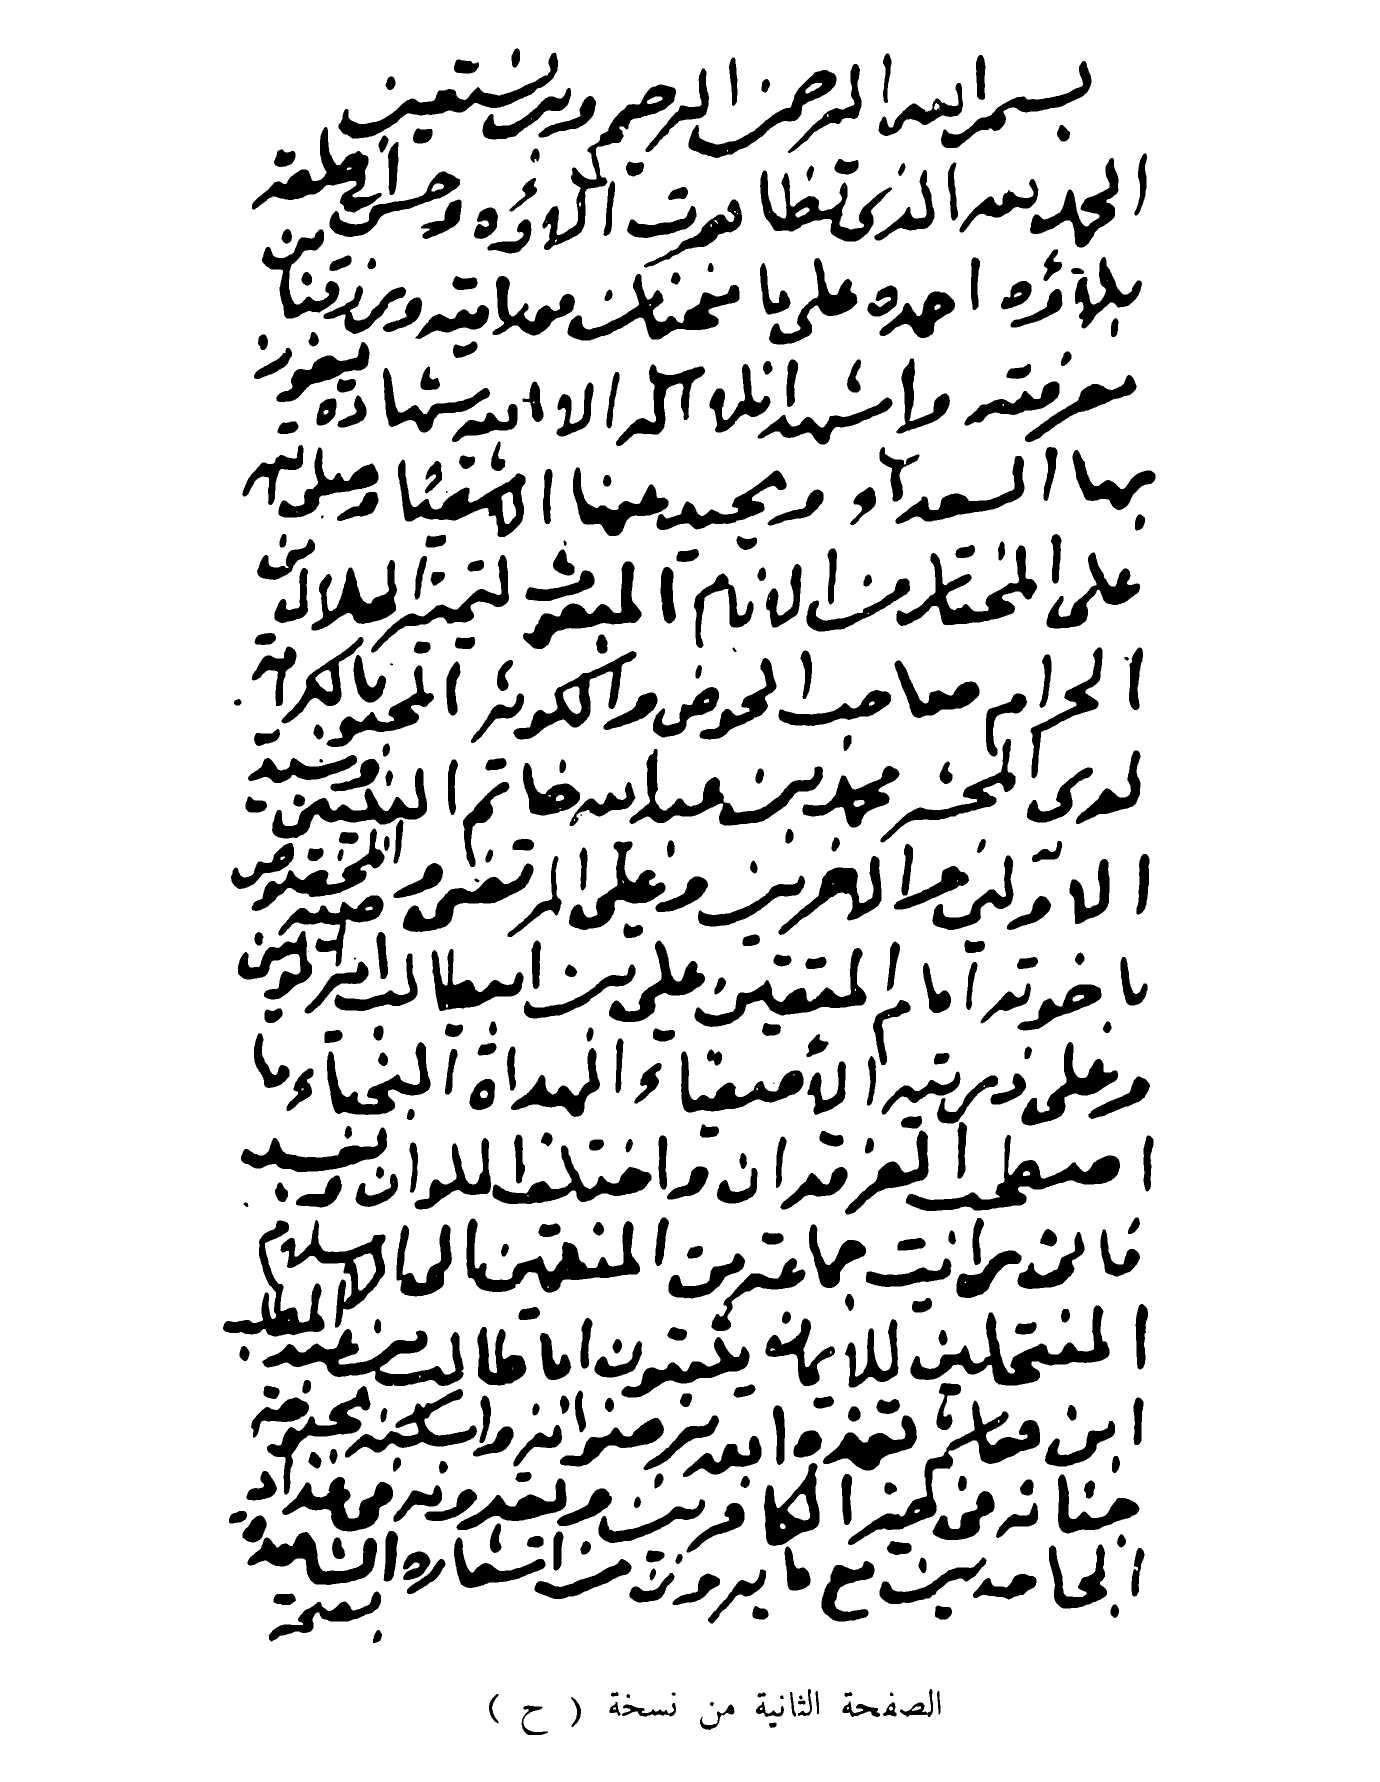 بسم الله الرحمن الرحيم وبه نستعين
الحمد لله الذي تظاهرت آلاؤه وحسن الى خلقه
بلاؤه احمده على ما منحنا من موالاته ورزقنا من
معرفته واشهد ان لا اله الا الله شهادة يفوز
بها السعداء ويحيد عنها الاشقياء وصلى الله
على المختار من الانام المبعوث لتمييز الحلال من
الحرام صاحب الحوض والكوثر المحبو بالكرامة
لدى المحشر محمد بن عبد الله خاتم النبيين وسيد
الاولين والاخرين وعلى المرتضى وصيه المخصوص
باخوته امام المتقين علي بن ابيطالب امير المؤمنين
وعلى ذريته الأصفياء الهداة النجباء ما
اصطحب الفرقدان واختلف الملوان وبعد
فانني رايت جماعة من المنتمين الى الاسلام
المنتحلين للايمان يثبتون ابا طالب بن عبد المطلب
ابن هاشم تغمده الله برضوانه واسكنه بحبوحة
جنانه في حيز الكافرين ويعدونه في عداد
الجاحدين مع ما يروون من اشعاره الشاهدة
بصحة
الصفحة الثانية من نسخة ( ح )